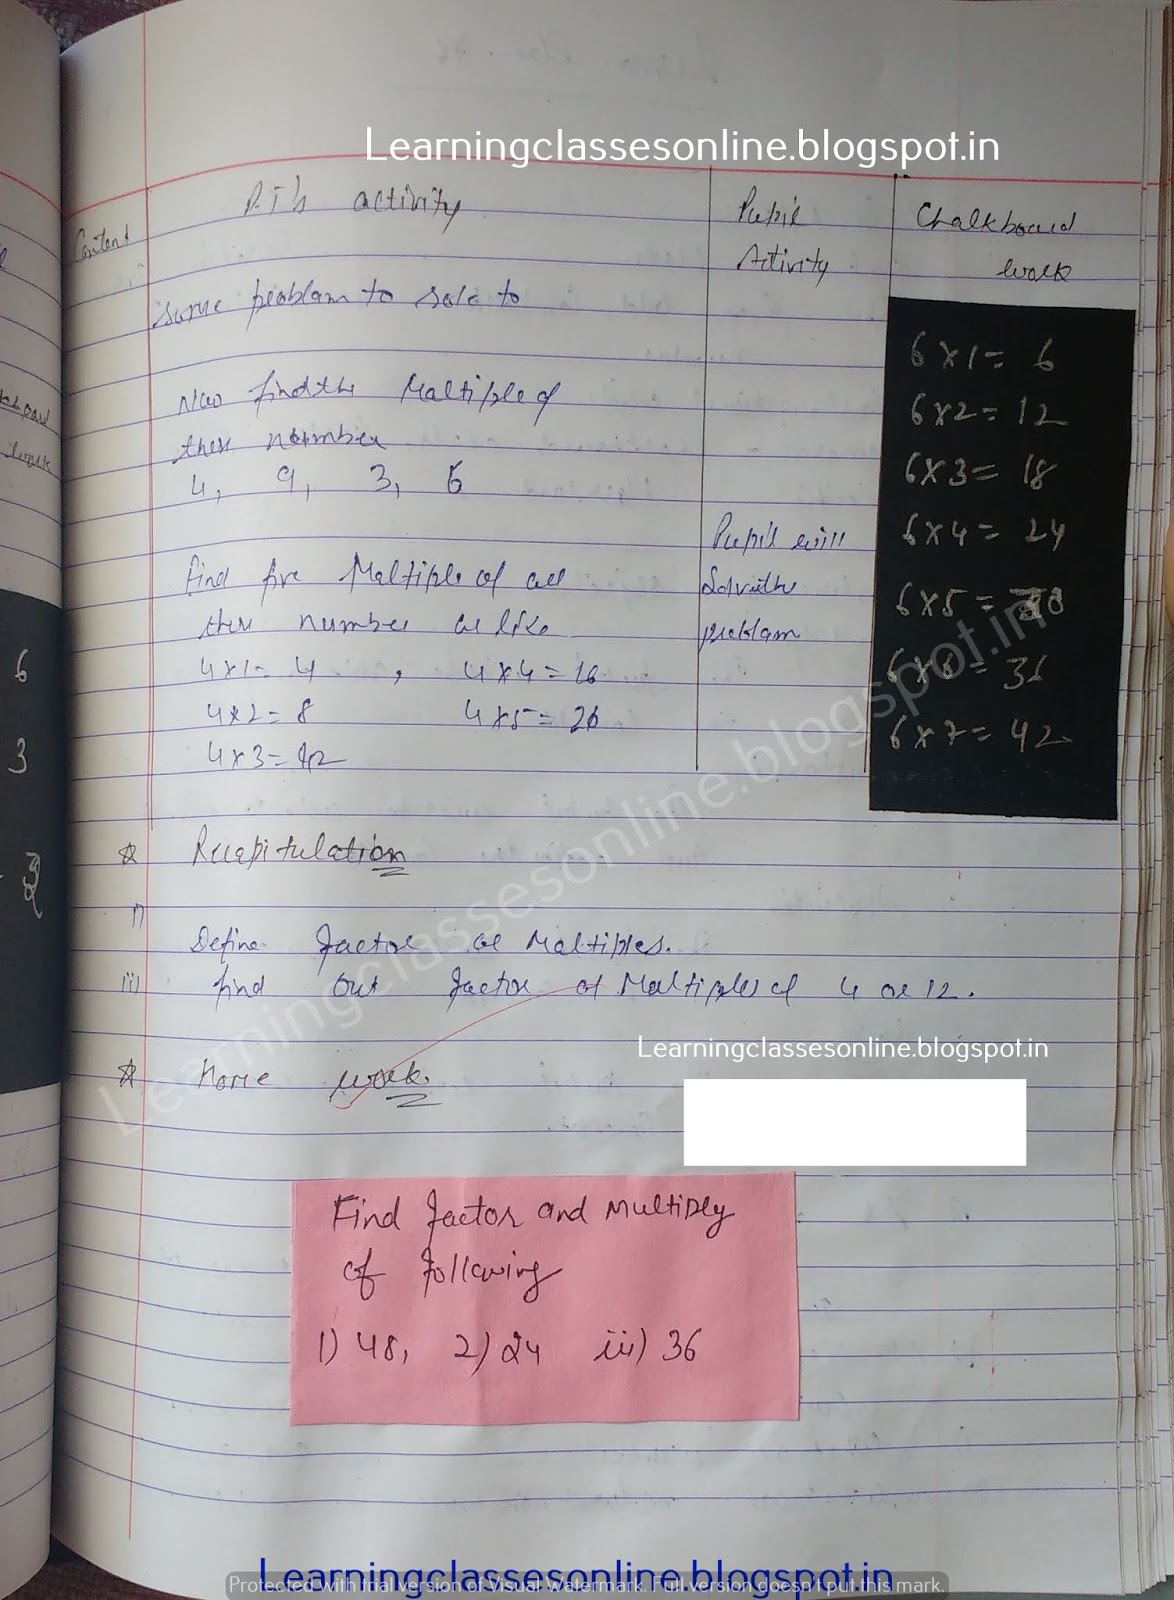 Learningclassesonline.blogspot.in
Content
P.T's activity
Pupil
Activity
Chalkboard
work
some problam to solc to
Now find the Maltiple of
thes number
4, 9, 3, 6
find five Maltiple of all
thes number as like
4x1= 4 , 4x4=16
4x2= 8 4x5= 20
4x3= 12
Pupil will
Solvethe
problam
6x1= 6
6x2=12
6x3= 18
6x4= 24
6x5= 30
6x6= 36
6x7= 42
work
6
3
3
☆ Recapitulation
i)
Define factor or Maltiples.
iii) find out factor of Maltiples of 4 or 12.
Learningclassesonline.blogspot.in
☆ Home work.
Find factor and multiply
of following
1) 48, 2) 24 iii) 36
Learningclassesonline.blogspot.in
Learningclassesonline.blogspot.in
Protected with trial version of Visual Watermark. Full version doesn't put this mark.